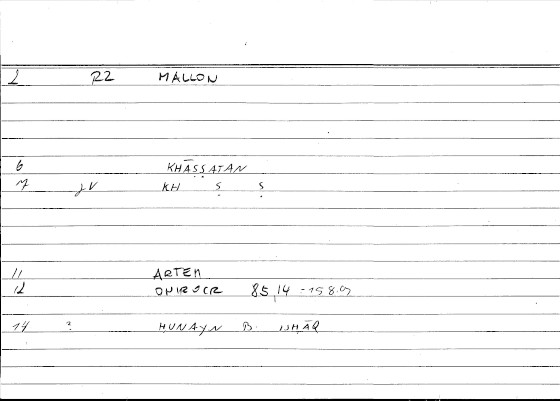 2 RZ MALLON
6 KHĀṢṢATAN
7 JV KH Ṣ Ṣ
11 ARTEM
12 ONIROCR 85,14 - 158.9
14 2 ḤUNAYN B. ISḤĀQ